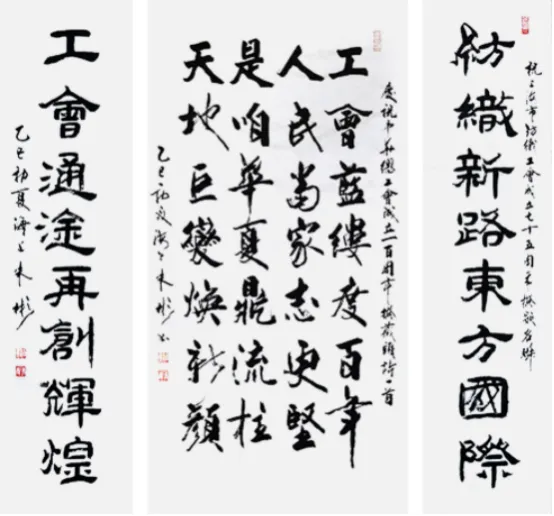 祝上海市紡織工會成立七十五周年撰嵌名聯
紡織新路東方國際
慶祝中華總工會成立一百周年撰藏頭詩一首
工會藍縷度百年
人民當家志更堅
是咱華夏鼎流柱
天地巨變煥新顏
乙巳初夏海上彬书
工會通途再創輝煌
乙巳初夏海上彬